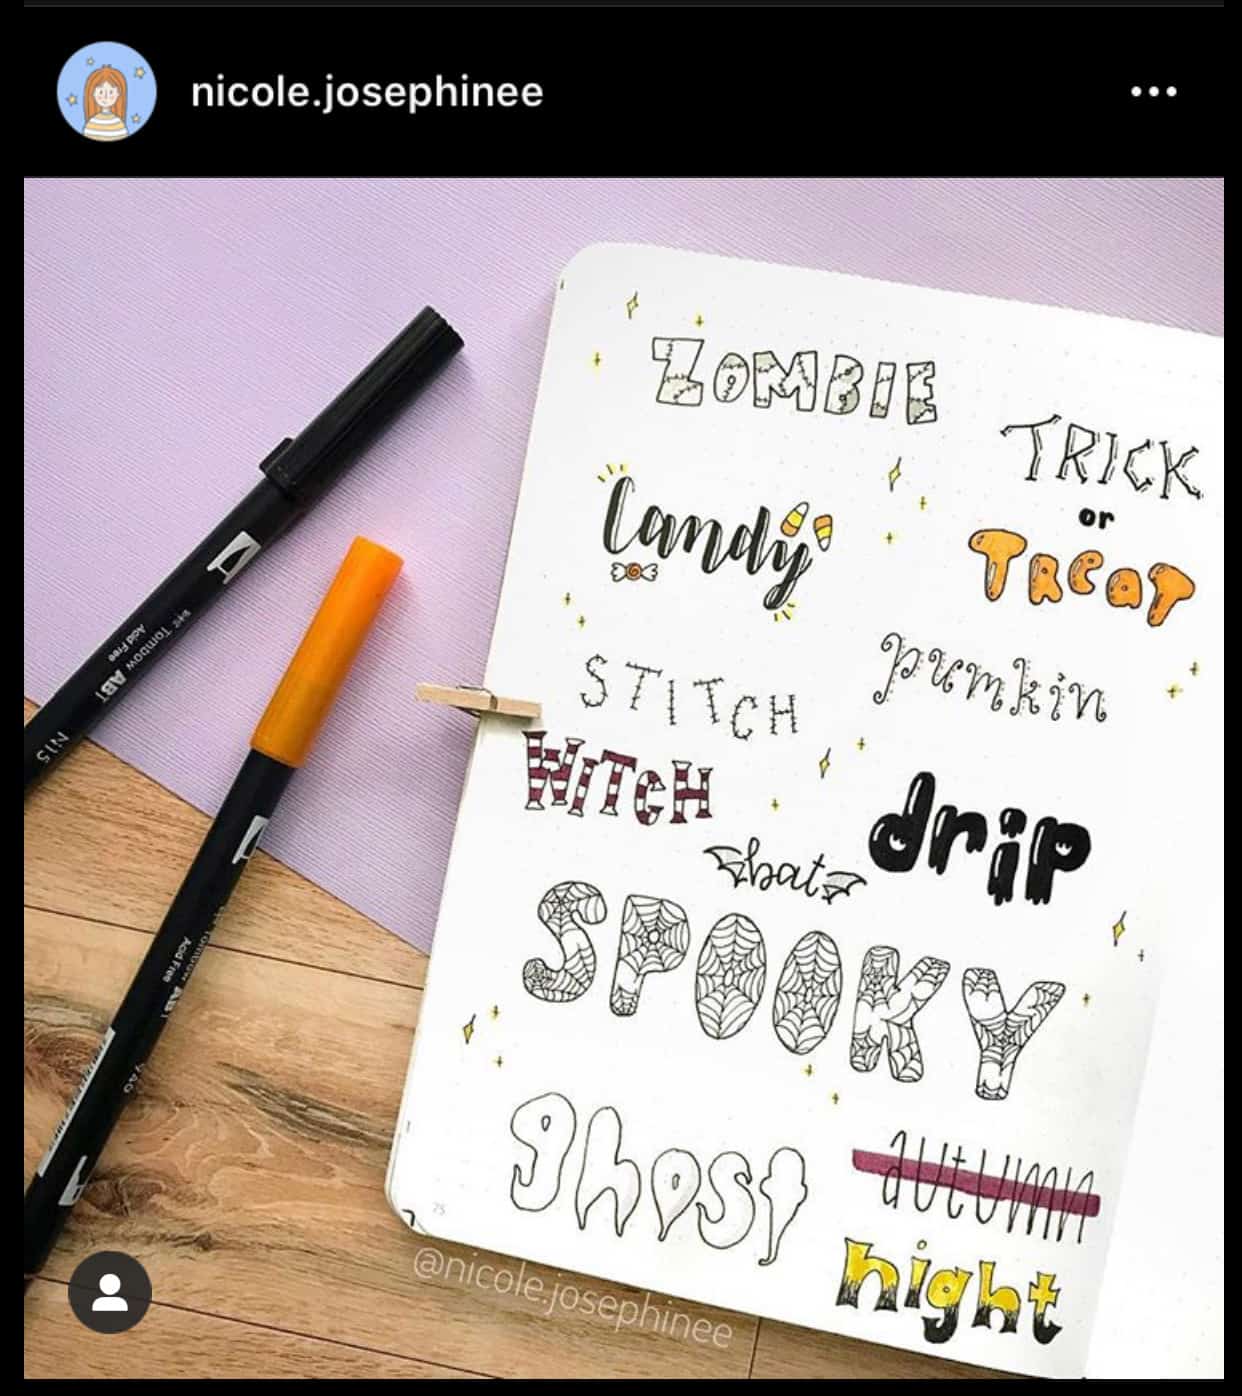 nicole.josephinee
ZOMBIE
TRICK
or
TREAT
Candy
pumkin
STITCH
WITCH
drip
bat
SPOOKY
ghost
autumn
night
75
@nicole.josephinee
Tombow ABT
Acid Free
N15
Acid Free